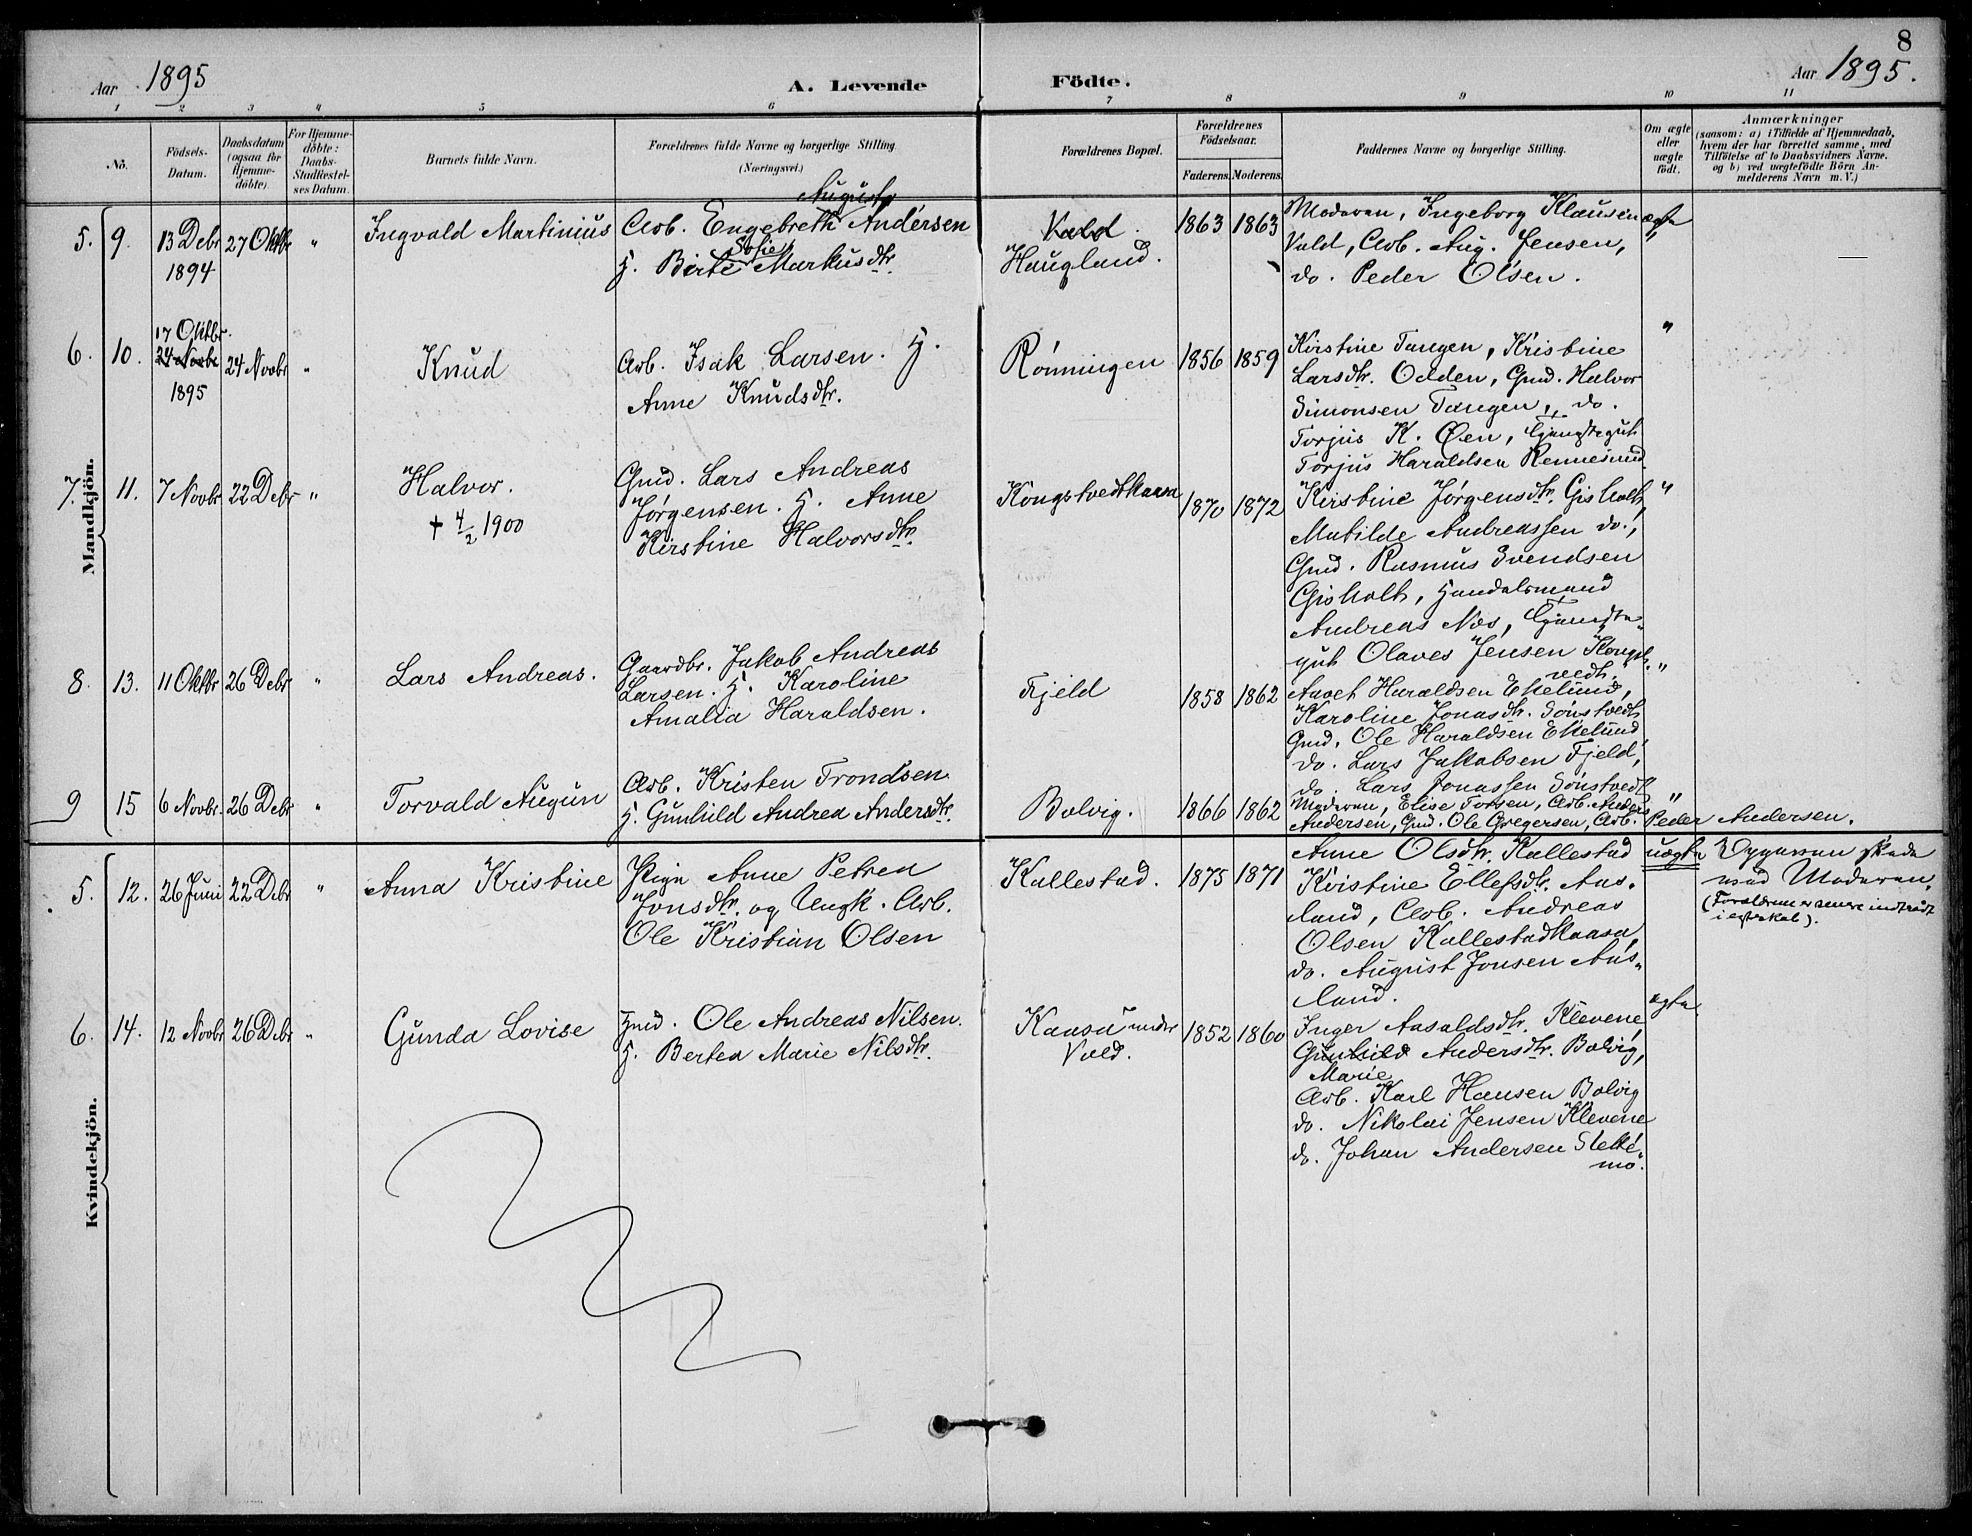 8
Aar 1895
A. Levende Födte.
Aar 1895.
1 2 3 4 5 6 7 8 9 10 11
No.
Födsels-Datum.
Daabsdatum (ogsaa for Hjemme-döbte)
For Hjemme-döbte: Daabs-Stadfestel-ses Datum.
Barnets fulde Navn.
Forældrenes fulde Navne og borgerlige Stilling (Næringsvei.)
Forældrenes Bopæl.
Forældrenes Födselsaar.
Faderens. Moderens.
Faddernes Navne og borgerlige Stilling.
Om ægte eller uægte födt.
Anmærkninger
(saasom: a) i Tilfælde af Hjemmedaab,
hvem der har forrettet samme, med
Tilföielse af to Daabsvidners Navne.
og b) ved uægtefödte Börn An-
melderens Navn m. V.)
Mandkjön.
5. 9. 13 Debr 1894 27 Oktbr " Ingvald Martinius
August
Arb. Engebreth Andersen
Sofie
H. Birte Markusdtr.
Vald.
Haugland.
1863 1863
Moderen, Ingeborg Klausen
Vald, Arb. Aug. Jensen,
do. Peder Olsen.
ægte
"
6. 10. 17 Oktbr.
24 Novbr
1895
24 Novbr " Knud
Arb. Isak Larsen. H.
Anne Knudsdtr.
Rønningen 1856 1859
Kirstine Tangen, Kristine
Larsdtr. Odden, Gmd. Halvor
Simonsen Tangen, do.
Torjus K. Øen, Tjenestegut
Torjus Haraldsen Rennesund
"
7. 11. 7 Novbr 22 Debr " Halvor.
+ 4/2 1900
Gmd. Lars Andreas
Jørgensen. H. Anne
Kirstine Halvorsdtr.
Kongstvedtkaasa 1870 1872
Kirstine Jørgensdtr. Gisholt,
Matilde Andreassen do.,
Gmd. Rasmus Svendsen
Gisholt, Handelsmand
Andreas Næs, Tjeneste-
gut Olaves Jensen Kongst-
vedt.
"
8. 13. 11 Oktbr 26 Debr " Lars Andreas.
Gaardbr. Jakob Andreas
Larsen. H. Karoline
Amalia Haraldsen.
Fjeld 1858 1862
Haraldsen Ekelund,
Karoline Jonasdtr. Sønstvedt
Gmd. Ole Haraldsen Ekelund,
do. Lars Jakobsen Fjeld,
do. Lars Jonassen Sønstvedt
"
9 15 6 Novbr. 26 Debr " Torvald Augun
Arb. Kristen Trondsen.
H. Gunhild Andrea Andersdtr.
Bolvig. 1866 1862
Moderen, Elise Torsen, Arb. Anders
Andersen, Gmd. Ole Gregersen, Arb. Peder Andersen.
"
Kvindekjön.
5. 12. 26 Juni 22 Debr " Anna Kristine
Pige Anne Petrea
Jonsdtr. og Ungk. Arb.
Ole Kristian Olsen
Kallestad. 1875 1871
Anne Olsdtr. Kallestad
Kristine Ellefsdtr. Aas-
land, Arb. Andreas
Olsen Kallestadkaasa,
do. August Jonsen Aas-
land.
uægte
Opgaven skede
ved Moderen.
(Forældrene er senere indtrådt
i egteskab).
6. 14. 12 Novbr 26 Debr " Gunda Lovise
Gmd. Ole Andreas Nilsen.
H. Bertea Marie Nilsdtr.
Kaasa under
Vald.
1852 1860
Inger Aasaldsdtr. Klevene,
Gunhild Andersdtr. Bolvig,
Marie
Arb. Karl Hansen Bolvig
do. Nikolai Jensen Klevene
do. Johan Andersen Slette-
mo.
ægte